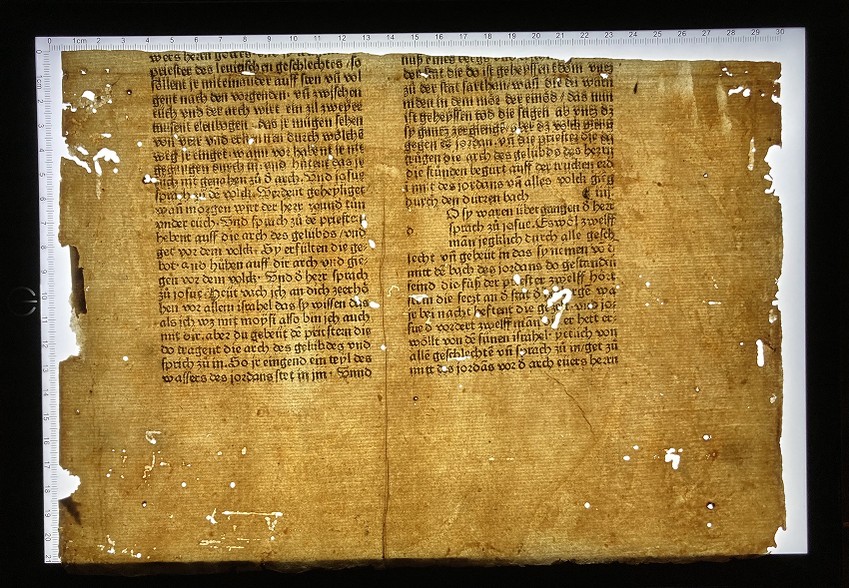 priester des levitischen geschlechtes /so
söllent je miteinander auff sten vn̄ vol
gent nach den vorgenden. vn̄ zwischen
euch vnd der arch wirt ein zil zweyer
tausent elenbogen. das je mügen sehen
von verr vnd erkennen durch wölche
weg je einget. wann vor habent je nit
gegangen durch in. vnd hütent das je
euch nit genahen zů ð arch. Vnd josue
sprach zů dē volck. Werdent geheyliget
wañ morgen wirt der herr wund tůn
vnder euch. Vnd sprach zů dē priestern
hebent auff die arch des gelübds /vnd
get vor dem volck. Sy erfülten die ge-
bot. and hůben auff dir arch vnd gie-
gen vor dem volck. Vnd ð herr sprach
zů josue. Heüt vach ich an dich zeerhö
hen vor allem israhel das sy wissen das
als ich wz mit moysi also bin ich auch
mit dir. aber du gebeüt dē priestern die
do tragent die arch des gelübds vnd
sprich zů in. So je eingend ein teyl des
wassers des jordans stet in jm. Vnnd
der stat die do ist geheyssen edom vntz
zů der stat sarthan. wañ die do warn
niden in dem mör der einöd / das nun
ist geheyssen tod die stigen ab vntz dz
sy gantz zergienge. aber dz volck gieng
gegen dē jordan. vn̄ die priester die do
trůgen die arch des gelübds des herrn
die stůnden begürt auff der trucken erd
i mit des jordans vn̄ alles volck gieg
durch den durren bach
iiij
O sy waren übergangen ð herr
d
sprach zů josue. Erwöl zwelff
man jegklich durch alle gesch
lecht vn̄ gebeüt in das sy nemen vō ð
mitt dē bach des jordans do gestanden
seind die füß der priester zwelff hört
stein die setzt an ð stat ð herberge wa
je bei nacht heftent die gezelt. vnd jos
sue ð vordert zwelff man die er hett er-
wölt von dē sünen israhel. yetlich von
alle geschlechtē vn̄ sprach zů in / get zů
mitt des jordās vor ð arch euers herrn